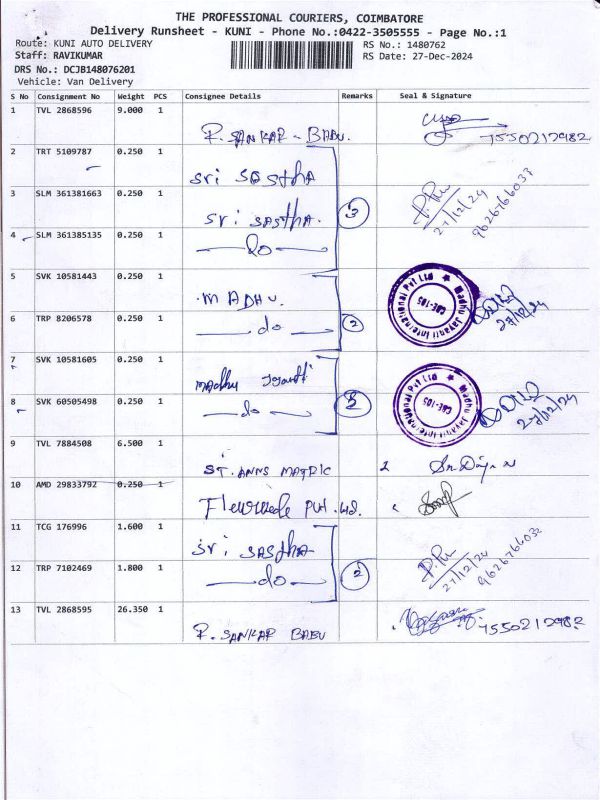 THE PROFESSIONAL COURIERS, COIMBATORE
Delivery Runsheet - KUNI - Phone No.:0422-3505555 - Page No.:1
Route: KUNI AUTO DELIVERY RS No.: 1480762
Staff: RAVIKUMAR RS Date: 27-Dec-2024
DRS No.: DCJB148076201
Vehicle: Van Delivery
S No Consignment No Weight PCS Consignee Details Remarks Seal & Signature
1 TVL 2868596 9.000 1
R. SANKAR - BABU. 7550212982
2 TRT 5109787 0.250 1
Sri SaStha
3 SLM 361381663 0.250 1
Sri SASTha. 3 27/12/24 9626766033
4 SLM 361385135 0.250 1
Do
5 SVK 10581443 0.250 1
MADHU.
6 TRP 8206578 0.250 1
do 2 Madhu Jayanti International Pvt Ltd CBE-105 27/12/24
7 SVK 10581605 0.250 1
Madhu Jayanti
8 SVK 60505498 0.250 1
do 2 Madhu Jayanti International Pvt Ltd CBE-105 27/12/24
9 TVL 7884508 6.500 1
ST. ANNS MATRIC
10 AMD 29833792 0.250 1
Pvt. Ltd.
11 TCG 176996 1.600 1
Sri SASTha
12 TRP 7102469 1.800 1
do 2 27/12/24 9626766033
13 TVL 2868595 26.350 1
R. SANKAR BABU 7550212982